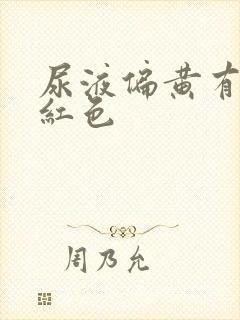 尿液偏黄有
紅色
周乃允